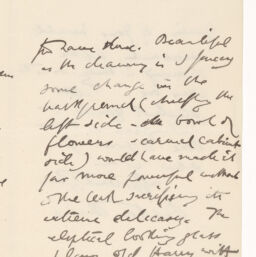 to have these. Beautiful
as the drawing is I fancy
some change in the
background (chiefly the
left side - the bowl of
flowers & cabinet
side) would have made it
far more powerful without
the least sacrificing its
extreme delicacy. The
elliptical looking glass
old Harry with